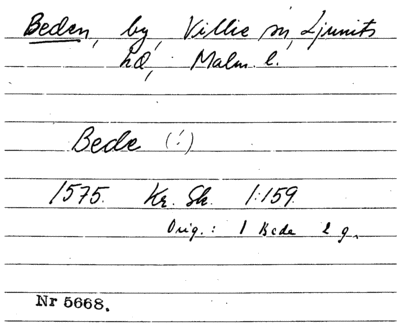 Beden, by, Villie sn, Ljunits
hd, Malm. l.
Bede (!)
1575. Kr. Sk. 1:159.
Orig.: 1 Bede 2 g.
Nr 5668.